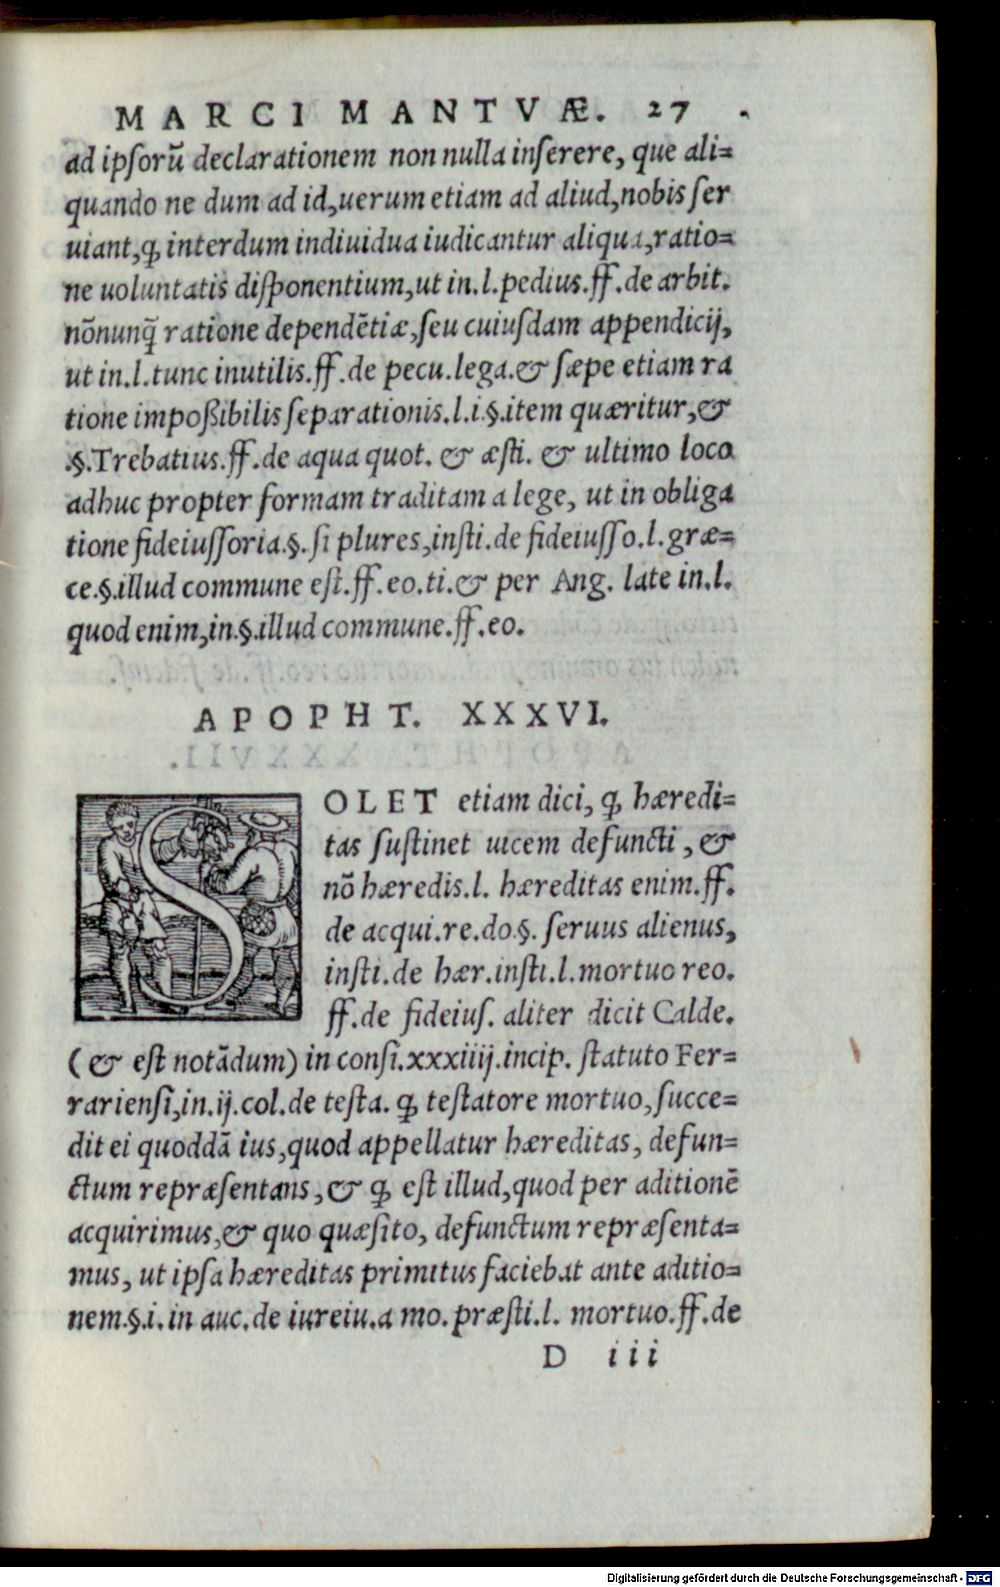 MARCI MANTVÆ. 27
ad ipsorū declarationem non nulla inserere, que ali=
quando ne dum ad id, uerum etiam ad aliud, nobis ser
uiant, ꝙ interdum indiuidua iudicantur aliqua, ratio=
ne uoluntatis disponentium, ut in.l.pedius.ff.de arbit.
nōnunq̄ ratione dependētiæ, seu cuiusdam appendicij,
ut in.l.tunc inutilis.ff.de pecu.lega.& sæpe etiam ra
tione impoßibilis separationis.l.i.§.item quæritur, &
.§.Trebatius.ff.de aqua quot. & æsti. & ultimo loco
adhuc propter formam traditam a lege, ut in obliga
tione fideiussoria.§.si plures, insti.de fideiusso.l.græ=
ce.§.illud commune est.ff.eo.ti.& per Ang. late in.l.
quod enim, in.§.illud commune.ff.eo.
APOPHT. XXXVI.
SOLET etiam dici, ꝙ hæredi=
tas sustinet uicem defuncti, &
nō hæredis.l. hæreditas enim.ff.
de acqui.re.do.§. seruus alienus,
insti.de hær.insti.l.mortuo reo.
ff.de fideius. aliter dicit Calde.
(& est notādum) in consi.xxxiiij.incip. statuto Fer=
rariensi, in.ij.col.de testa. ꝙ testatore mortuo, succe=
dit ei quoddā ius, quod appellatur hæreditas, defun=
ctum repræsentans, & ꝙ est illud, quod per aditionē
acquirimus, & quo quæsito, defunctum repræsenta=
mus, ut ipsa hæreditas primitus faciebat ante aditio=
nem.§.i.in auc.de iureiu.a mo.præsti.l. mortuo.ff.de
D iii
Digitalisierung gefördert durch die Deutsche Forschungsgemeinschaft - DFG